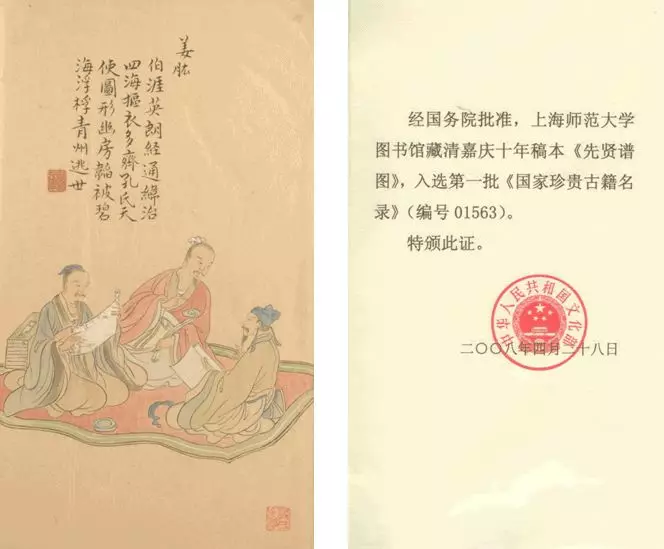 姜肱
伯淮英朗經通緯治
四海摳衣多齊孔氏天
使圖形幽房韜被碧
海浮桴青州逃世
经国务院批准，上海师范大学
图书馆藏清嘉庆十年稿本《先贤谱
图》，入选第一批《国家珍贵古籍名
录》（编号 01563）。
特颁此证。
中华人民共和国文化部
二〇〇八年四月二十八日